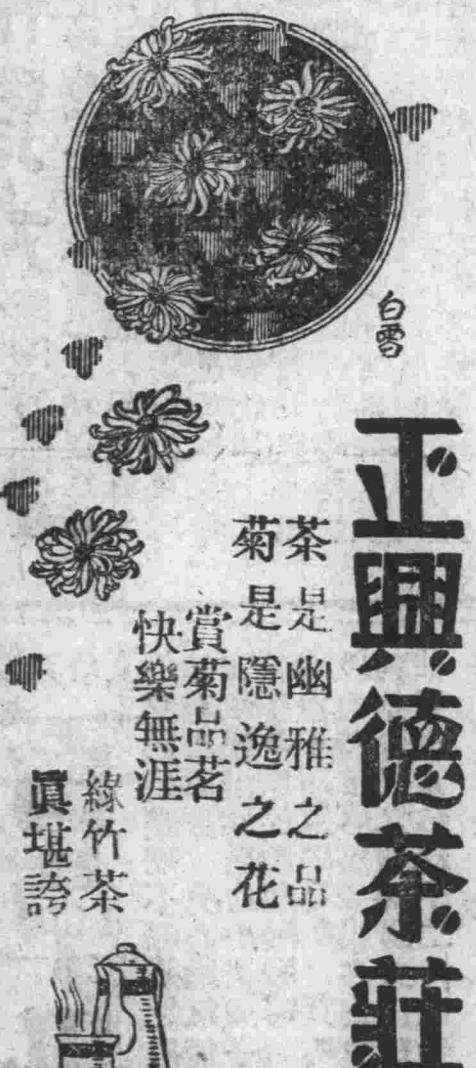 白雪
正興德茶莊
茶是幽雅之品
菊是隱逸之花
賞菊品茗
快樂無涯
綠竹茶
眞堪誇